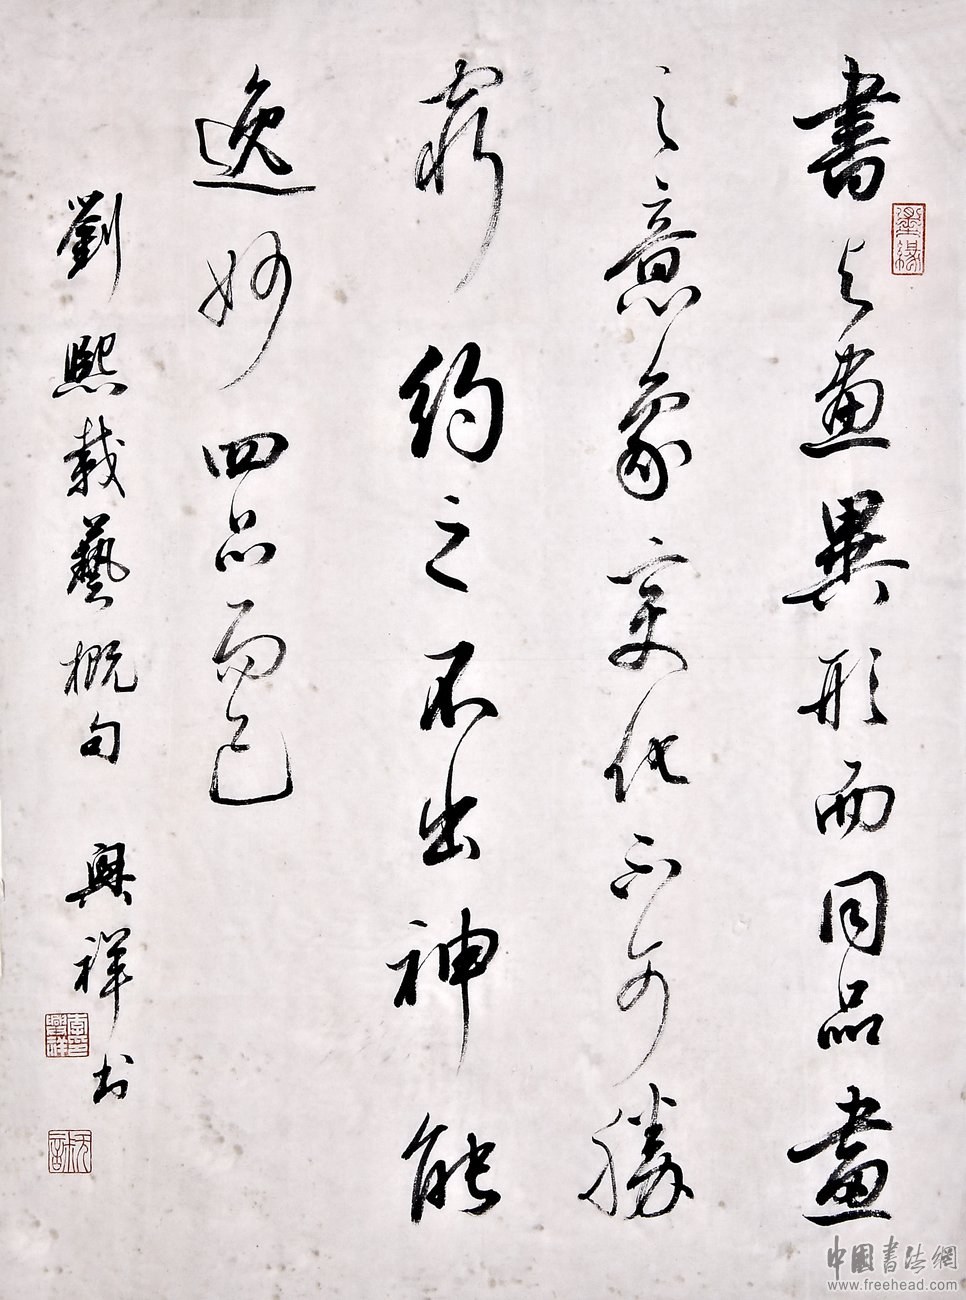 書与畫異形而同品畫
之意象变化不可勝
窮約之不出神能
逸妙四品而已
劉熙載藝概句 興祥书
墨緣
中國書法網
www.freehead.com